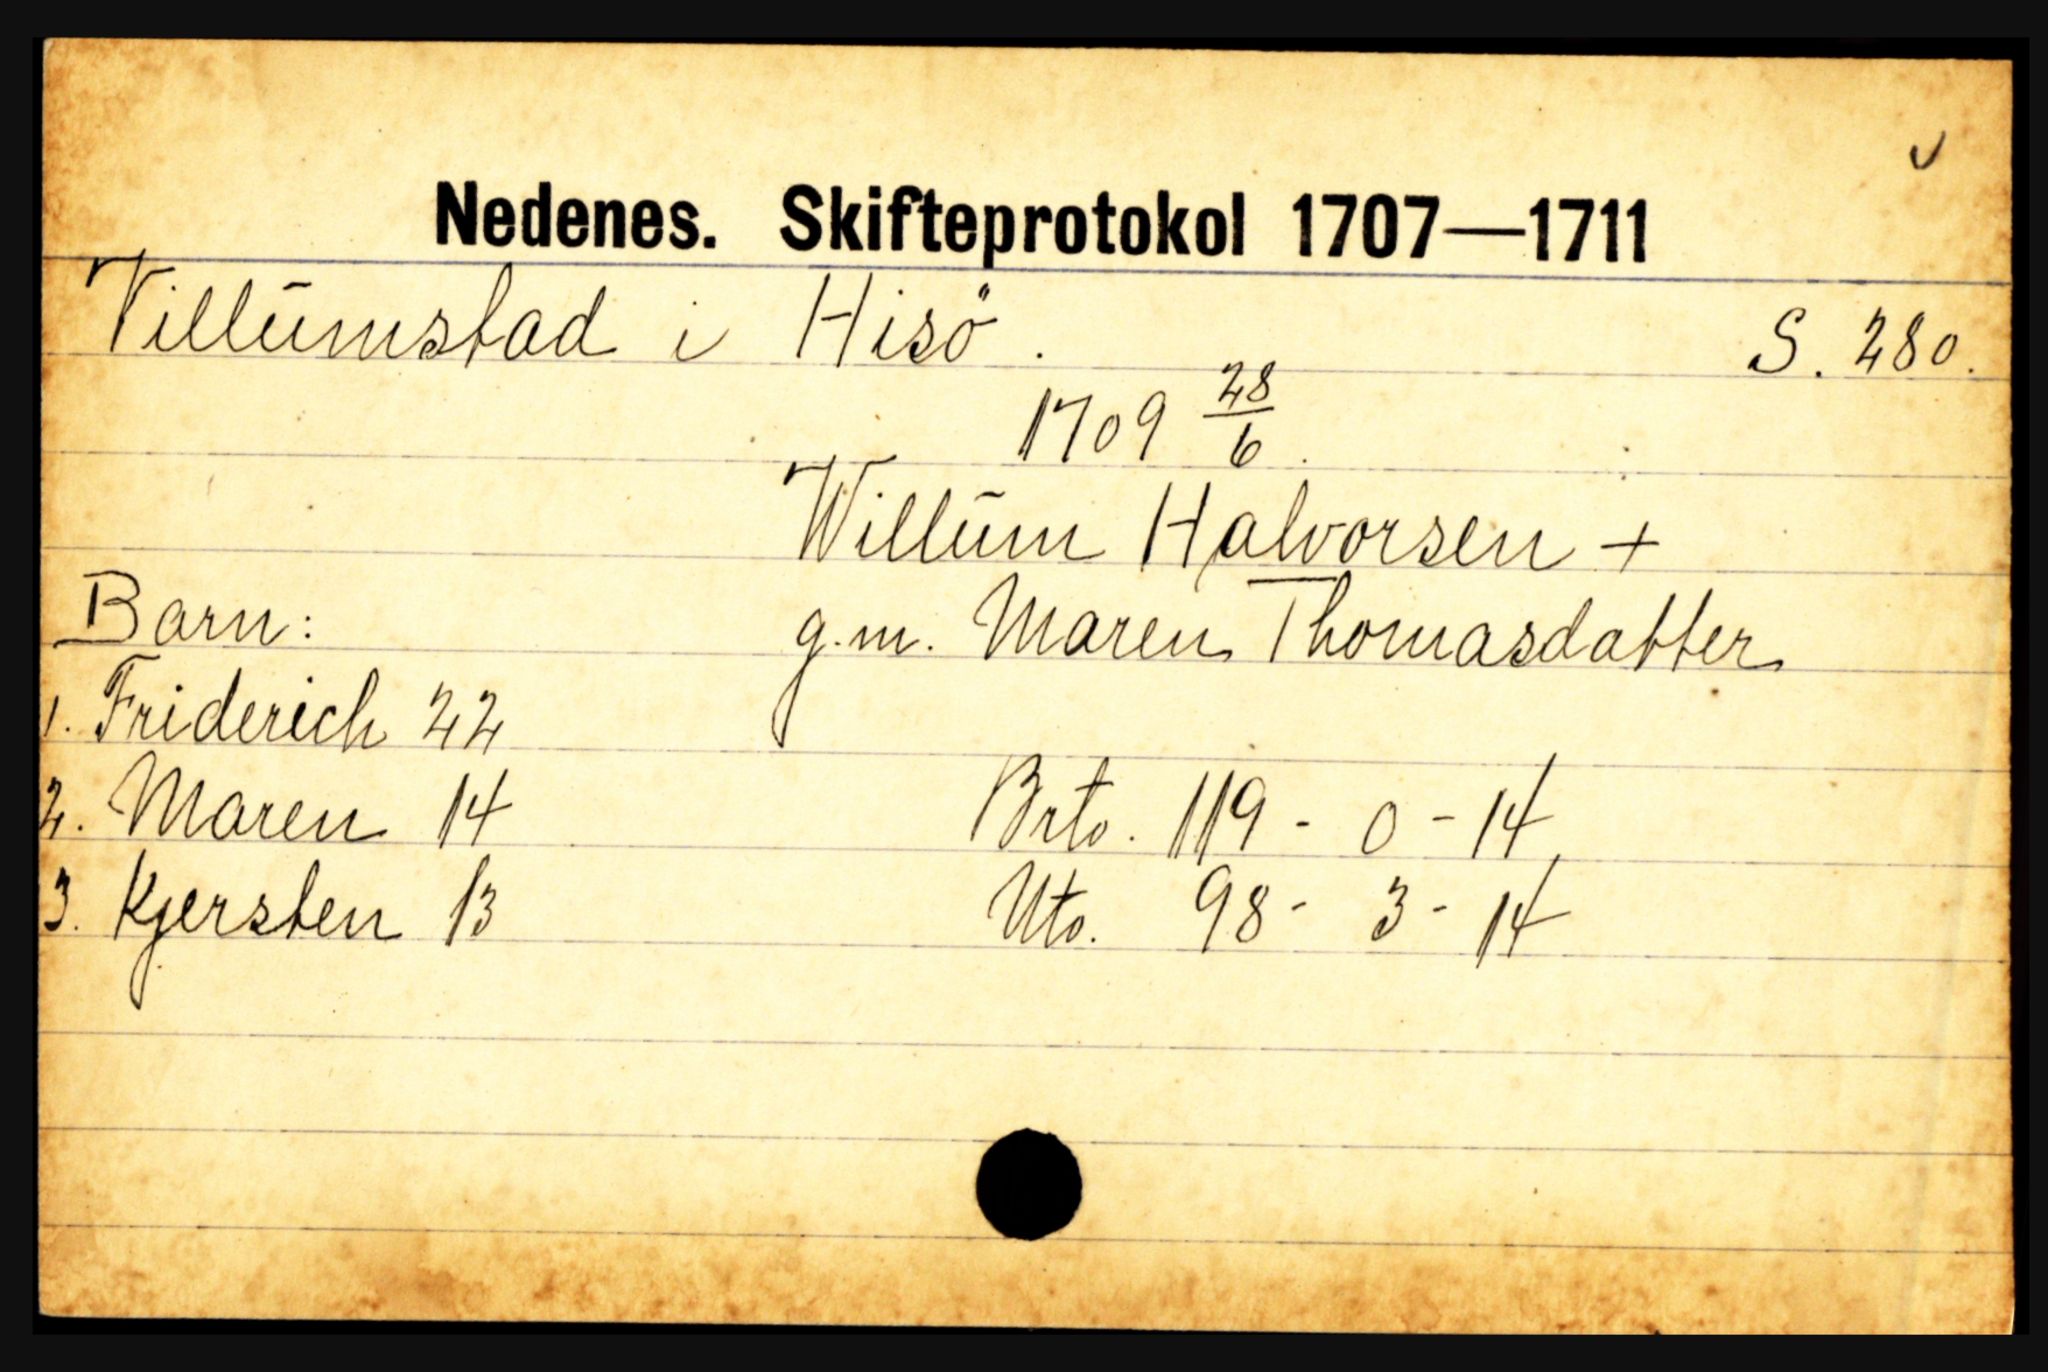 Nedenes. Skifteprotokol 1707—1711
Villūmstad i Hisö. S. 280.
1709 28/6.
Willūm Halvorsen +
Barn: g.m. Maren Thomasdatter
1. Friderich 22
2. Maren 14 Brto. 119 - 0 - 14
3. Kjersten 13 Nto. 98 - 3 - 14